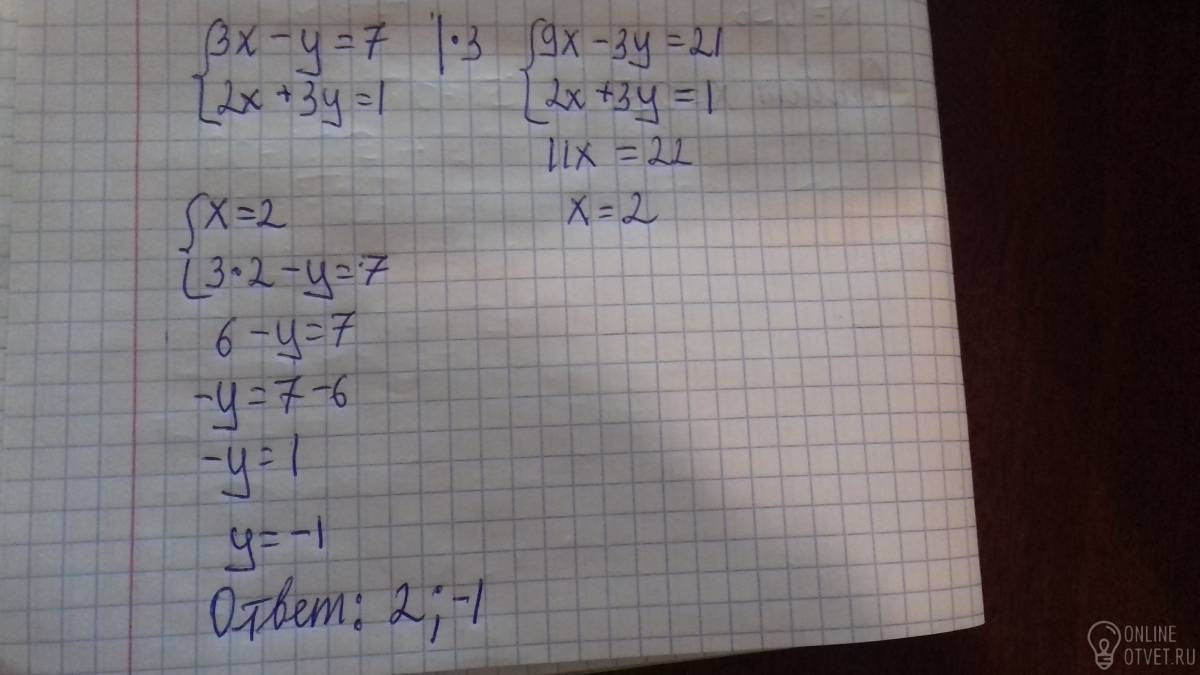 3x - y = 7 | · 3
2x + 3y = 1
9x - 3y = 21
2x + 3y = 1
11x = 22
x = 2
x = 2
3 · 2 - y = 7
6 - y = 7
-y = 7 - 6
-y = 1
y = -1
Ответ: 2; -1
ONLINE
OTVET.RU